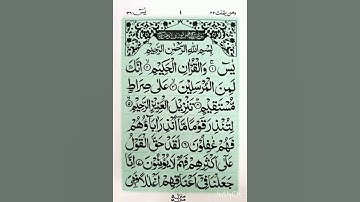 يٰسٓ ٣٦
١
بِسْمِ اللهِ الرَّحْمٰنِ الرَّحِيْمِ
يٰسٓ ۚ ١ وَالْقُرْاٰنِ الْحَكِيْمِ ۙ ٢ اِنَّكَ
لَمِنَ الْمُرْسَلِيْنَ ۙ ٣ عَلٰى صِرَاطٍ
مُّسْتَقِيْمٍ ؕ ٤ تَنْزِيْلَ الْعَزِيْزِ الرَّحِيْمِ ۙ ٥
لِتُنْذِرَ قَوْمًا مَّاۤ اُنْذِرَ اٰبَآؤُهُمْ
فَهُمْ غٰفِلُوْنَ ٦ لَقَدْ حَقَّ الْقَوْلُ
عَلٰۤى اَكْثَرِهِمْ فَهُمْ لَا يُؤْمِنُوْنَ ٧ اِنَّا
جَعَلْنَا فِيْۤ اَعْنَاقِهِمْ اَغْلٰلًا فَهِيَ